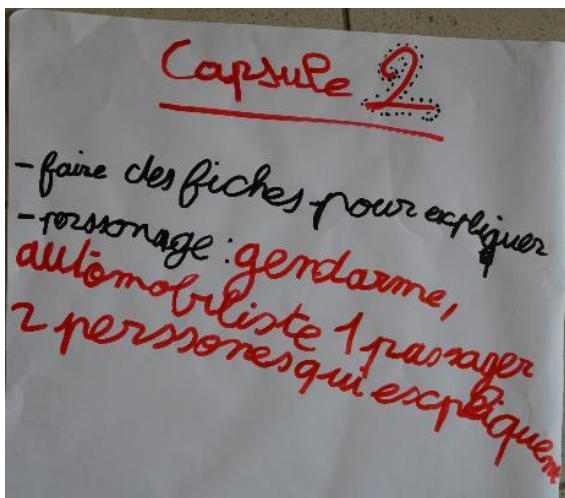 Capsule 2
- faire des fiches pour expliquer
- perssonage : gendarme,
automobiliste 1 passager
2 perssones qui expliquent